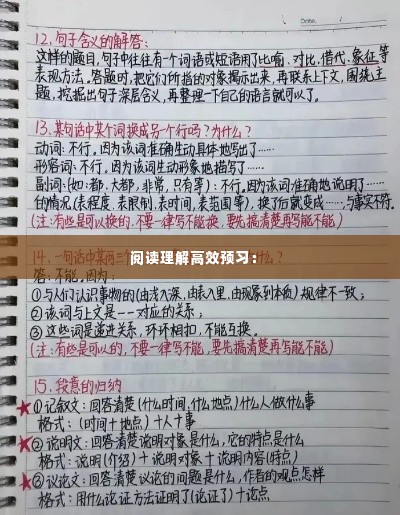 Date.
12.句子含义的解答:
这样的题目,句子中往往有一个词语或短语用了比喻、对比、借代、象征等
表现方法。答题时,把它们所指的对象揭示出来,再联系上下文,围绕主
题,挖掘出句子深层含义,再整理一下自己的语言就可以了。
13.某句话中某个词换成另一个行吗?为什么?
动词:不行。因为该词准确生动具体地写出了……
形容词:不行。因为该词生动形象地描写了……
副词:(如:都,大都,非常,只有等):不行。因为该词准确地说明了……
的情况(表程度,表限制,表时间,表范围等),换了后就变成……,与事实不符。
(注:有些是可以换的,不要一律写不能换,要先搞清楚再写能不能)
14.一句话中某两三个
阅读理解高效预习:
么?
答:不能。因为:
①与人们认识事物的(由浅入深,由表入里,由现象到本质)规律不一致;
②该词与上文是一一对应的关系;
③这些词是递进关系,环环相扣,不能互换。
(注:有些是可以的,不要一律写不能,要先搞清楚再写能不能)
15.段意的归纳
①记叙文:回答清楚(什么时间,什么地点)什么人做什么事
格式:(时间+地点)+人+事
②说明文:回答清楚说明对象是什么,它的特点是什么
格式:说明(介绍)+说明对象+说明内容(特点)
③议论文:回答清楚议论的问题是什么,作者的观点怎样
格式:用什么论证方法证明了(论证了)+论点